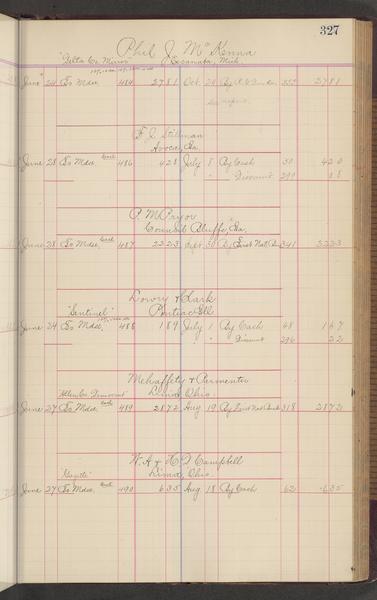 327
Phil J. McKenna
"Delta Co. Mirror" Escanaba, Mich.
June 24 To Mdse. 484 2781 Oct. 2781
F. J. Stillman
Avoca, Ia.
June 28 To Mdse. Cash 486 428 July 8 By Cash 50 420
" Discount 299 08
A. M. Pryor
Council Bluffs, Ia.
June 28 To Mdse. Cash 487 2223 Sept. 30 By First Nat. 341 2223
Lowry & Clark
"Sentinel" Pontiac Ill
June 24 To Mdse. 488 189 July 1 By Cash 48 167
" Discount 296 22
Mehaffey & Parmenter
"Allen Co. Democrat" Lima, Ohio.
June 27 To Mdse. Cash 489 2872 Aug 19 By First Nat Bank 318 2872
W. A. & H. D. Campbell
"Gazette" Lima, Ohio.
June 27 To Mdse. Cash 490 635 Aug 18 By Cash 62 635